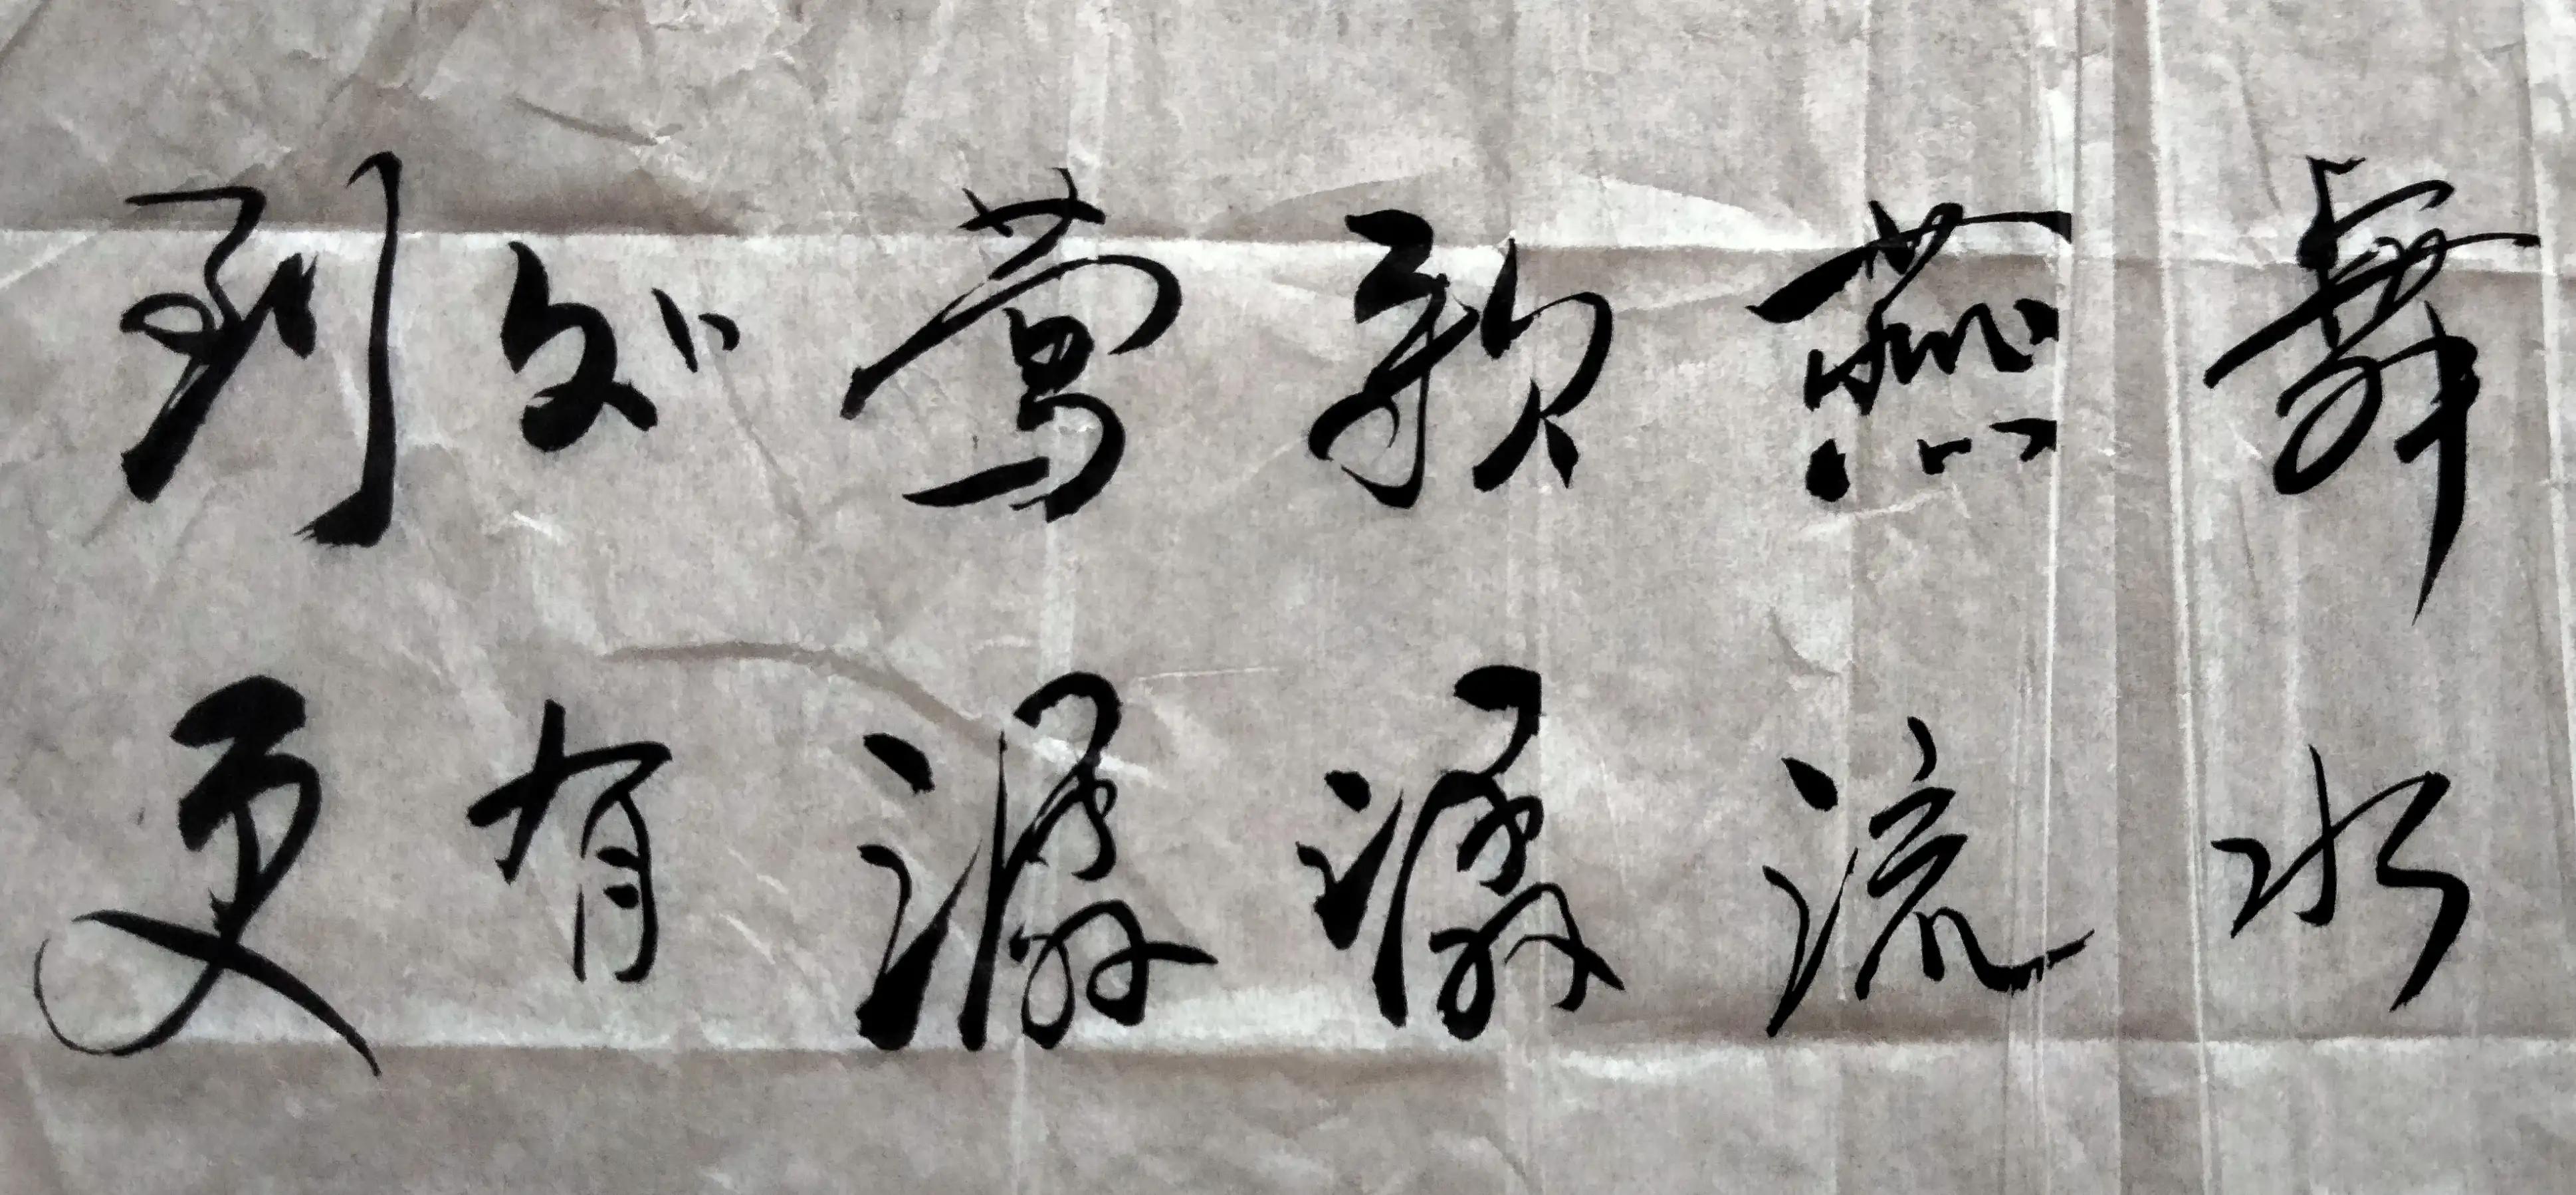 到处莺歌燕舞
更有潺潺流水